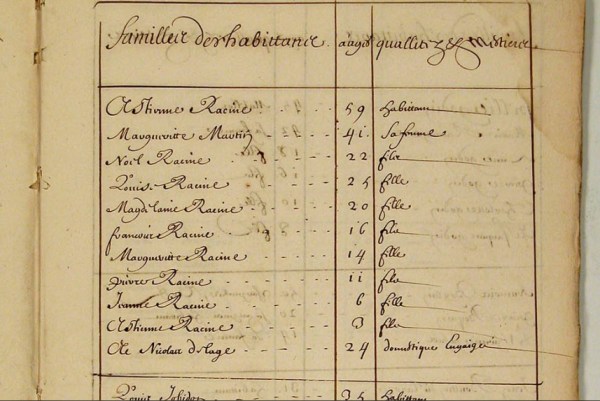 familles des habittants aagés quallités & mestiers
Estienne Racine 59 habittant
Margueritte Martin 41 Sa femme
Noël Racine 22 fils
Louis Racine 25 fille
Magdelaine Racine 20 fille
francois Racine 16 fils
Margueritte Racine 14 fille
pierre Racine 11 fils
Jeanne Racine 6 fille
Estienne Racine 3 fils
Nicolas 24 domestique Engaigé
Louis Jobidon 35 habittant